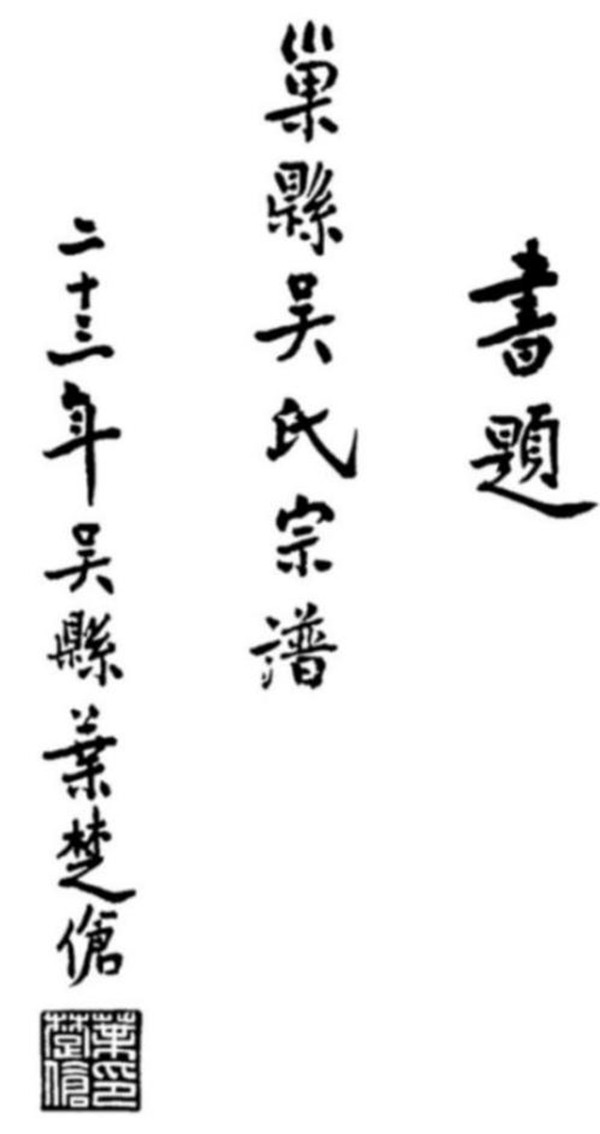 書題
巢縣吳氏宗譜
二十三年吳縣葉楚傖
葉楚傖印